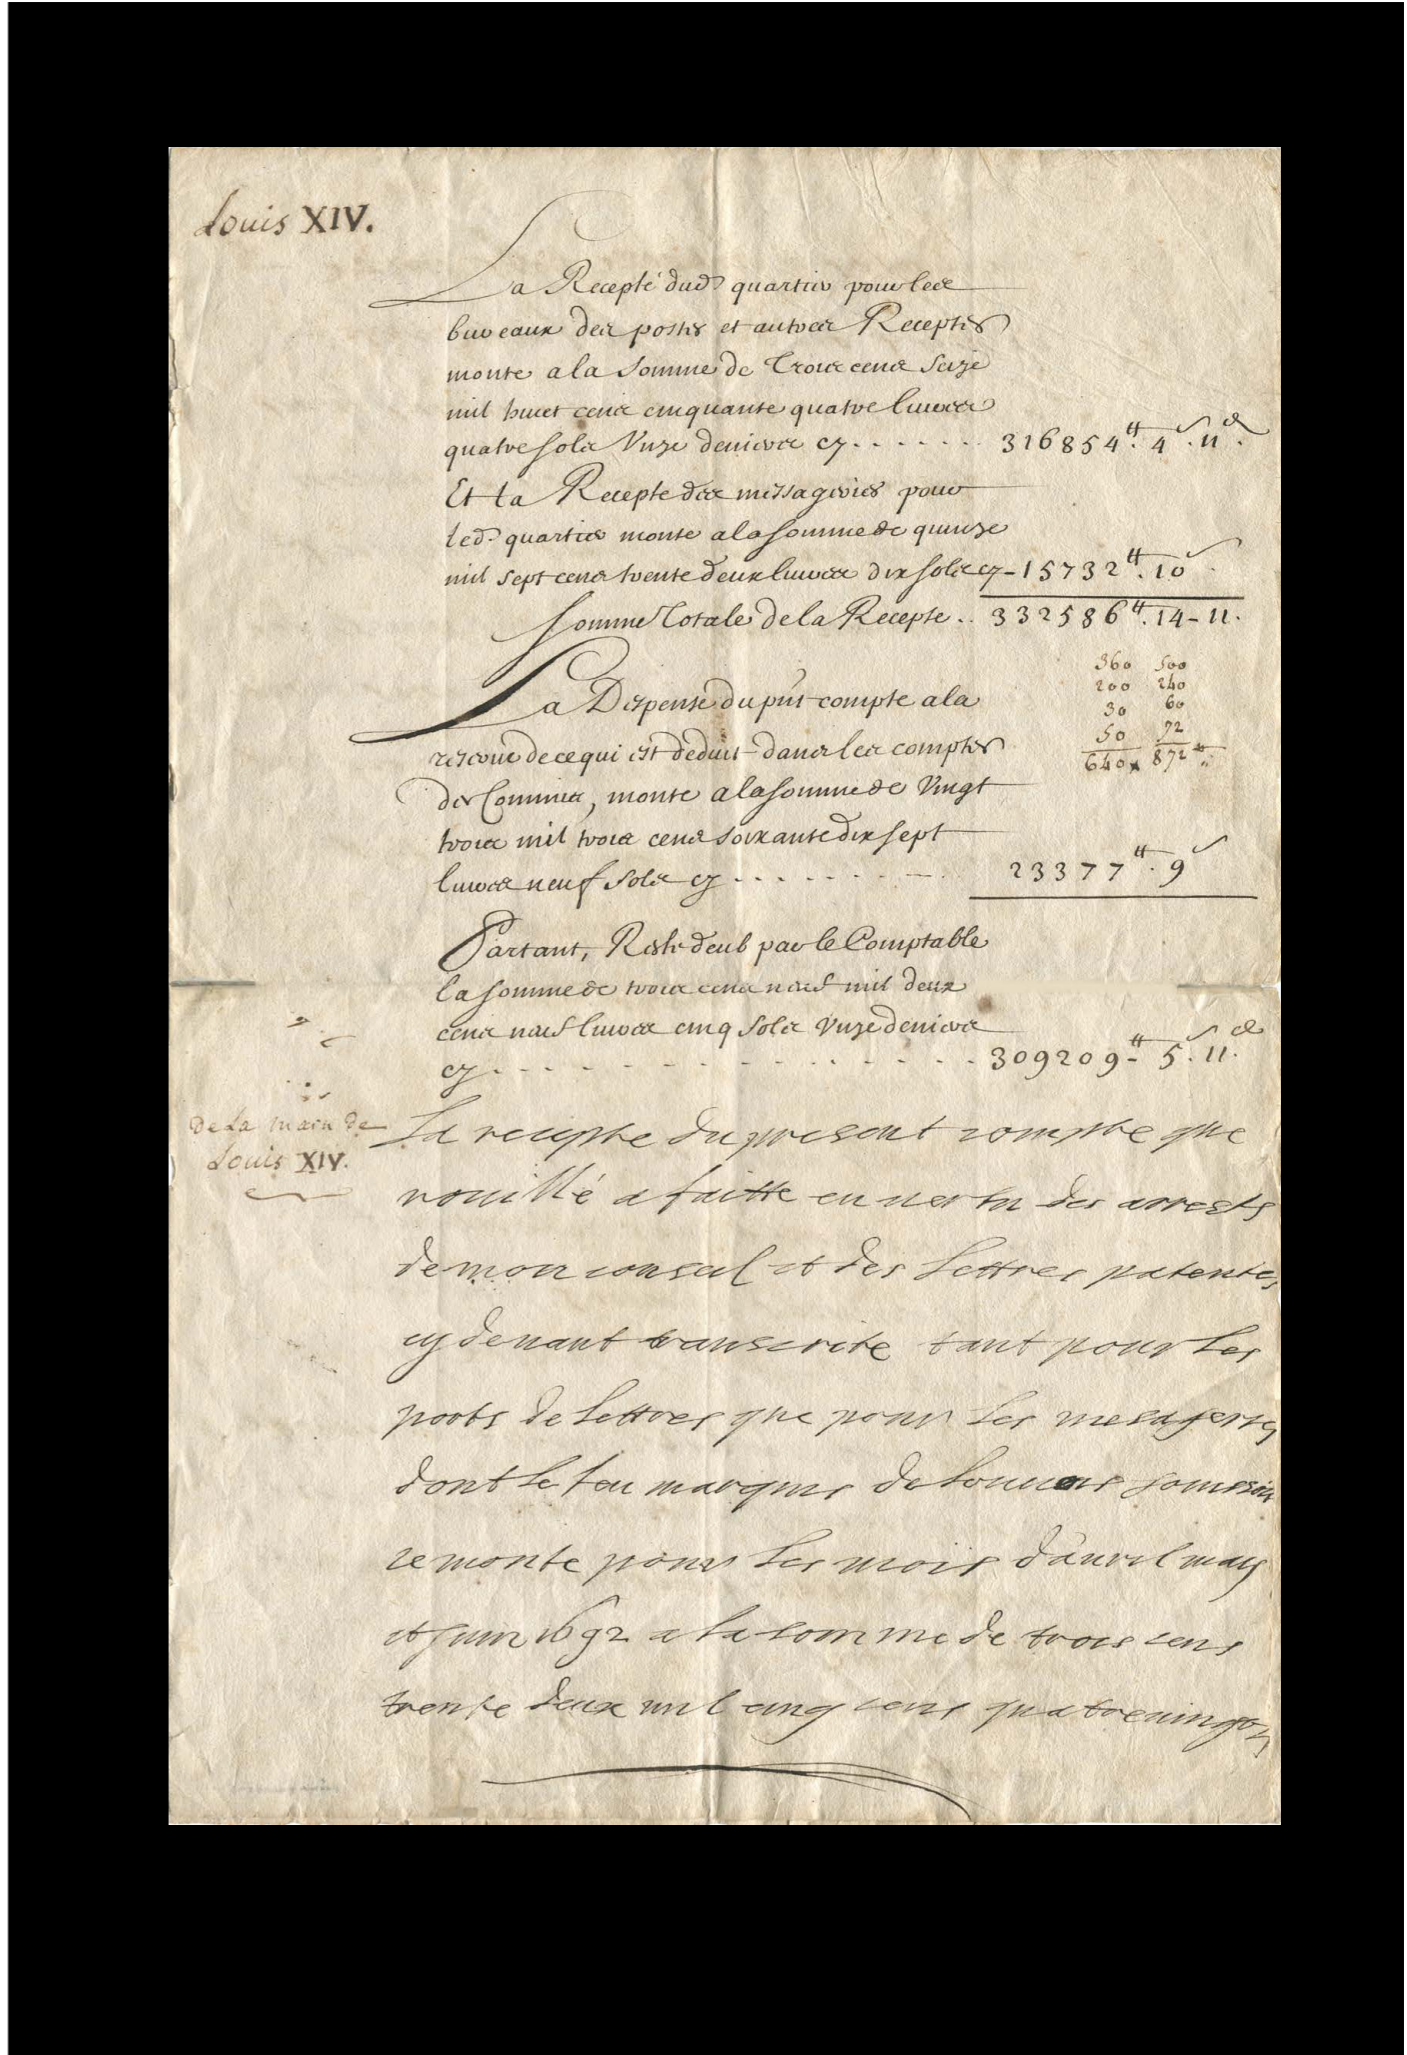 Louis XIV.
La Recepte dud. quartier pour les
bureaux des postes et autres Receptes
monte a la somme de Trois cens seize
mil huict cens cinquante quatre livres
quatre sols Unze deniers cy . . . . . . . 316854 tt. 4 s. 11 d.
Et la Recepte des messageries pour
led. quartier monte a la somme de quinze
mil sept cens trente deux livres dix sols cy - 15732 tt. 10 s.
Somme Totale de la Recepte . . 332586 tt. 14 - 11.
360 500
200 240
30 60
50 72
640 872 tt
La Despense du pnt compte a la
reserve de ce qui est deduit dans les comptes
des Commis, monte a la somme de Vingt
trois mil trois cens soixante dix sept
livres neuf sols cy . . . . . . . . . 23377 tt. 9 s
Partant, Reste deub par le Comptable
la somme de trois cens neuf mil deux
cens neuf livres cinq sols Unze deniers
cy . . . . . . . . . . . . . . . 309209 tt - 5 s. 11 d.
De La main de
Louis XIV.
La recepte du present compte que
rouillé a faitte en vertu des arrests
de mon conseil et des lettres patentes
cy devant transcrite tant pour les
ports de lettres que pour les mesageries
dont le feu marquis de louvois jouissoit
remonte pour les mois d'avril may
et juin 1692 a la somme de trois cens
trente deux mil cinq cens quatrevingts